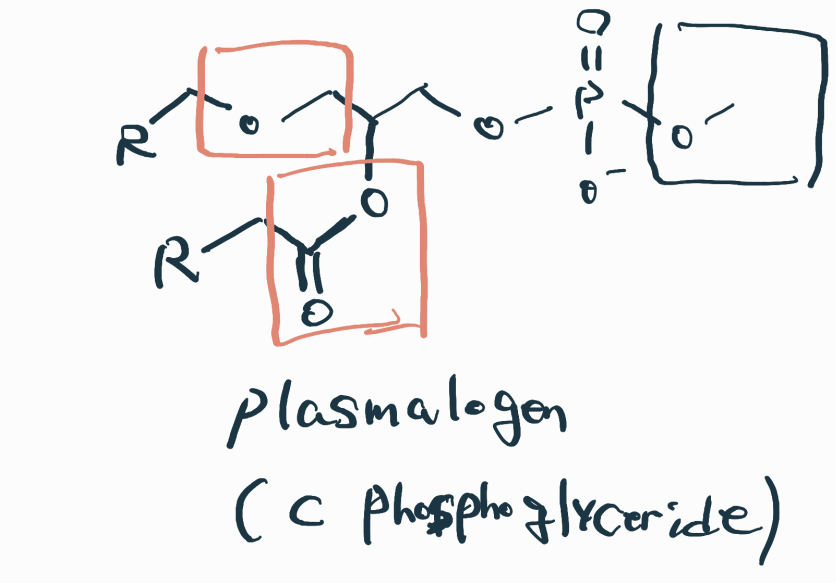 O
R O O P O
O O⁻
R O
plasmalogen
( C phosphoglyceride)